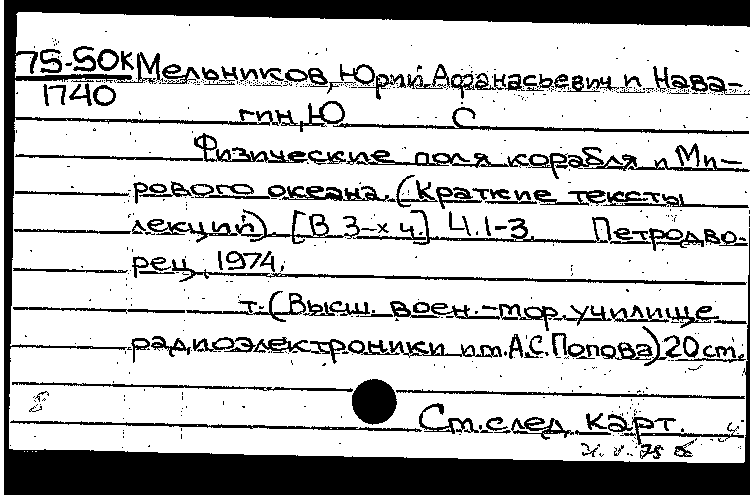 75-50к Мельников, Юрий Афанасьевич и Нава-
1740
гин, Ю С
Физические поля корабля и Ми-
рового океана. (Краткие тексты
лекций). [В 3-х ч.] Ч.1-3. Петродво-
рец, 1974.
т. (Высш. воен.-мор. училище
радиоэлектроники им. А.С. Попова) 20 см.
Ст. след. карт.